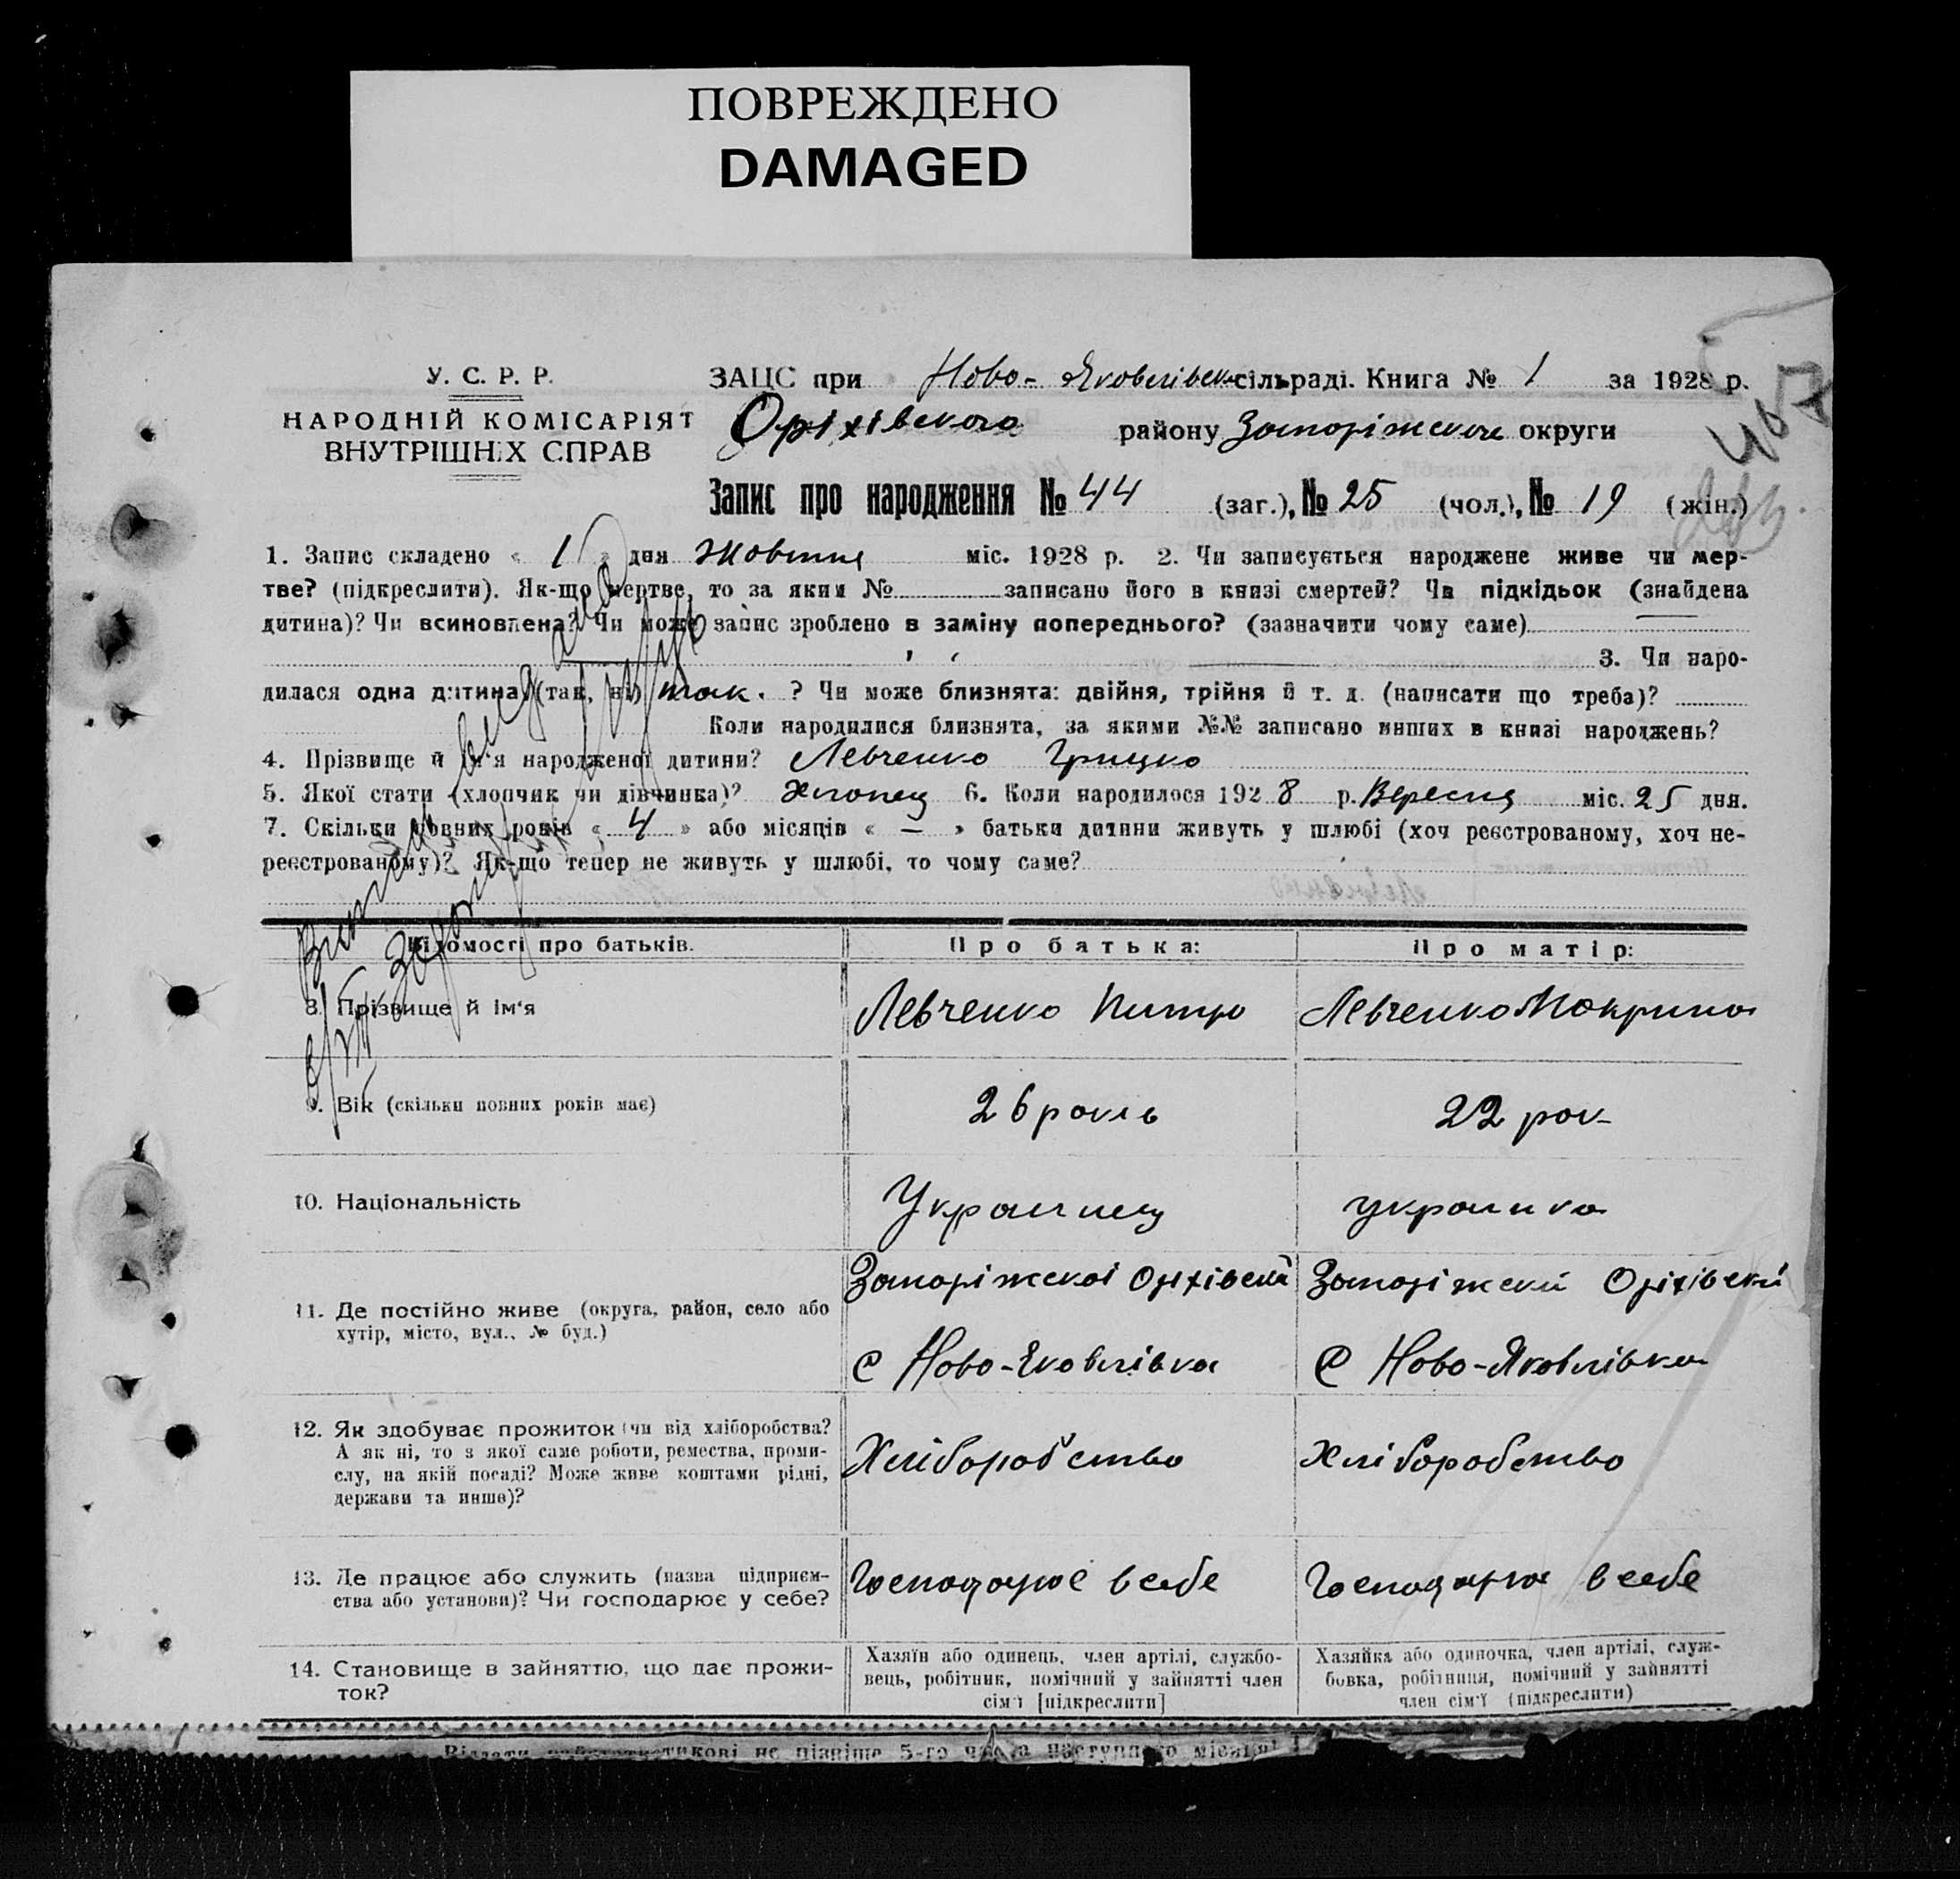 ПОВРЕЖДЕНО
DAMAGED
У. С. Р. Р.
НАРОДНІЙ КОМІСАРІЯТ
ВНУТРІШНІХ СПРАВ
ЗАЦС при Ново-Яковлівськ сільраді. Книга № 1 за 1928 р.
Оріхівского району Запоріжскои округи
Запис про народження № 44 (заг.), № 25 (чол.), № 19 (жін.)
1. Запис складено « 1 » дня Жовтня міс. 1928 р. 2. Чи записується народжене живе чи мер-
тве? (підкреслити). Як-що мертве, то за яким № записано його в книзі смертей? Чи підкідьок (знайдена
дитина)? Чи всиновлена? Чи може запис зроблено в заміну попереднього? (зазначити чому саме)
3. Чи наро-
дилася одна дитина (так, ні) так. ? Чи може близнята: двійня, трійня й т. д. (написати що треба)?
Коли народилися близнята, за якими №№ записано инших в книзі народжень?
4. Прізвище й ім'я народженої дитини? Левченко Грицко
5. Якої стати (хлопчик чи дівчинка)? Хлопец 6. Коли народилося 1928 р. Вересня міс. 25 дня.
7. Скільки повних років « 4 » або місяців « — » батьки дитини живуть у шлюбі (хоч реєстрованому, хоч не-
реєстрованому)? Як-що тепер не живуть у шлюбі, то чому саме?
Відомості про батьків. Про батька: Про матір:
8. Прізвище й ім'я Левченко Питро Левченко Мокрина
9. Вік (скільки повних років має) 26 років 22 рок
10. Національність Украінец украинка
11. Де постійно живе (округа, район, село або
хутір, місто, вул., № буд.)
Запоріжскоі Оріхівскі
с Ново-Яковлівка
Запоріжскій Оріхівскі
с Ново-Яковлівка
12. Як здобуває прожиток (чи від хліборобства?
А як ні, то з якої саме роботи, ремества, проми-
слу, на якій посаді? Може живе коштами рідні,
держави та инше)?
Хліборобство Хліборобство
13. Де працює або служить (назва підприєм-
ства або установи)? Чи господарює у себе?
Господарює в себе Господарює в себе
14. Становище в зайняттю, що дає прожи-
ток?
Хазяїн або одинець, член артілі, службо-
вець, робітник, помічний у зайнятті член
сім'ї [підкреслити]
Хазяйка або одиночка, член артілі, служ-
бовка, робітниця, помічний у зайнятті
член сім'ї (підкреслити)
не пізніше 5-го числа наступного місяця!